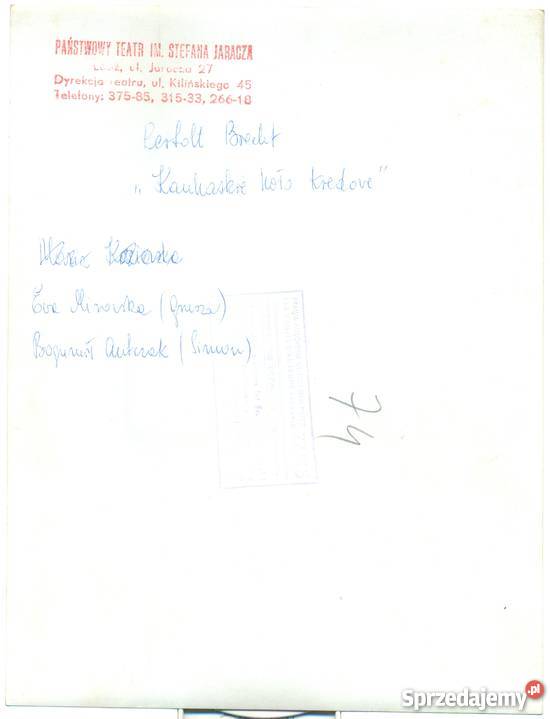 PAŃSTWOWY TEATR IM. STEFANA JARACZA
Łódź, ul. Jaracza 27
Dyrekcja teatru, ul. Kilińskiego 45
Telefony: 375-85, 315-33, 266-18
Bertolt Brecht
„Kaukaskie koło kredowe"
Ewa Mirowska (Grusza)
Bogumił Antczak (Simon)
74
Sprzedajemy.pl